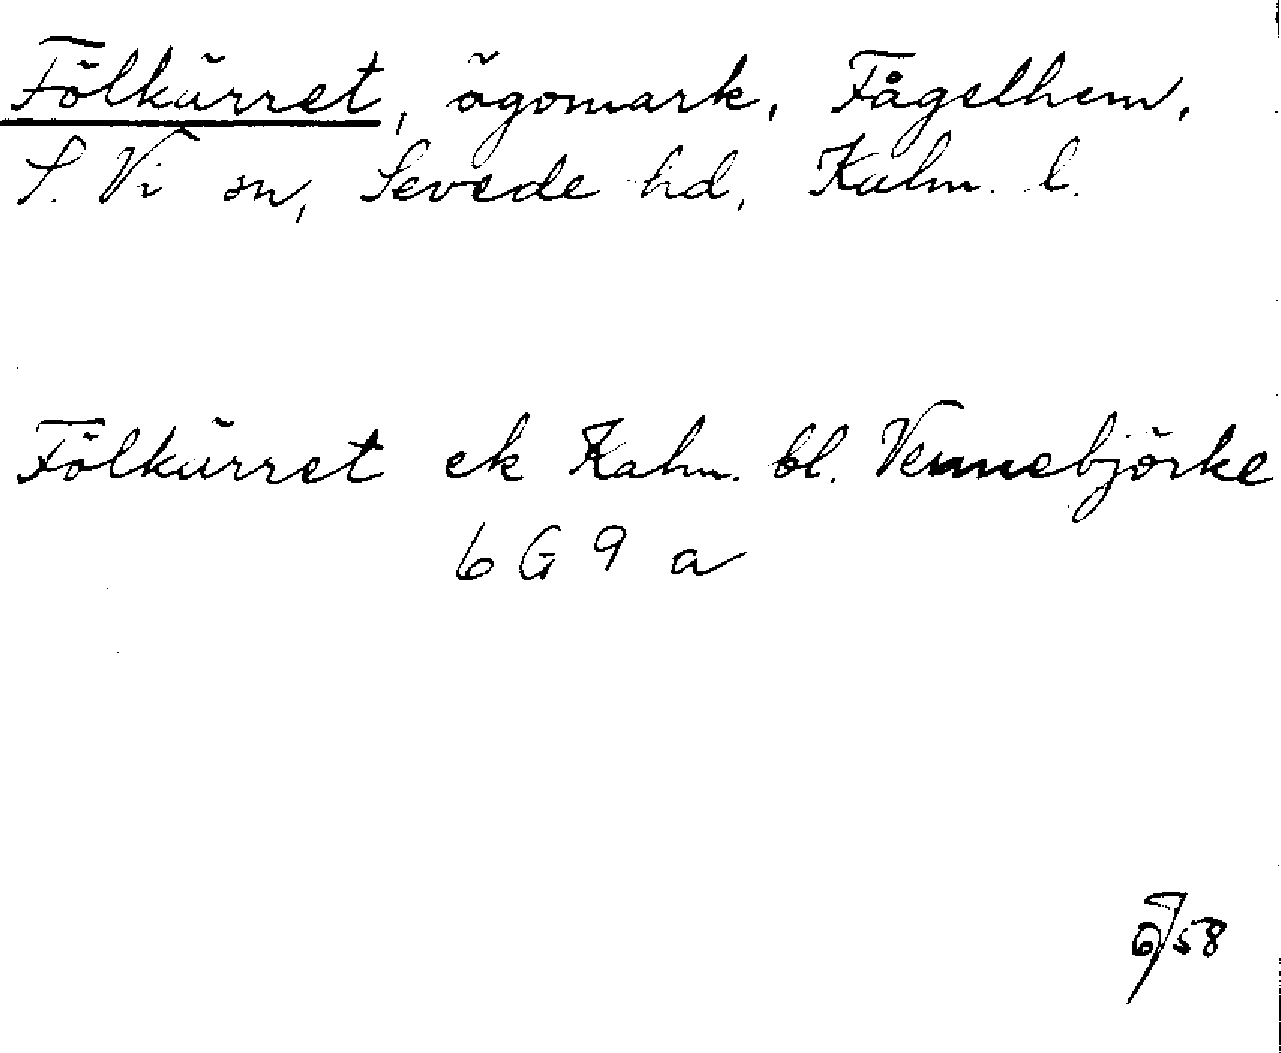 Fölkärret, ägomark, Fågelhem,
S. Vi sn, Sevede hd, Kalm. l.
Fölkärret ek Kalm. bl. Vennebjörke
6 G 9 a
58